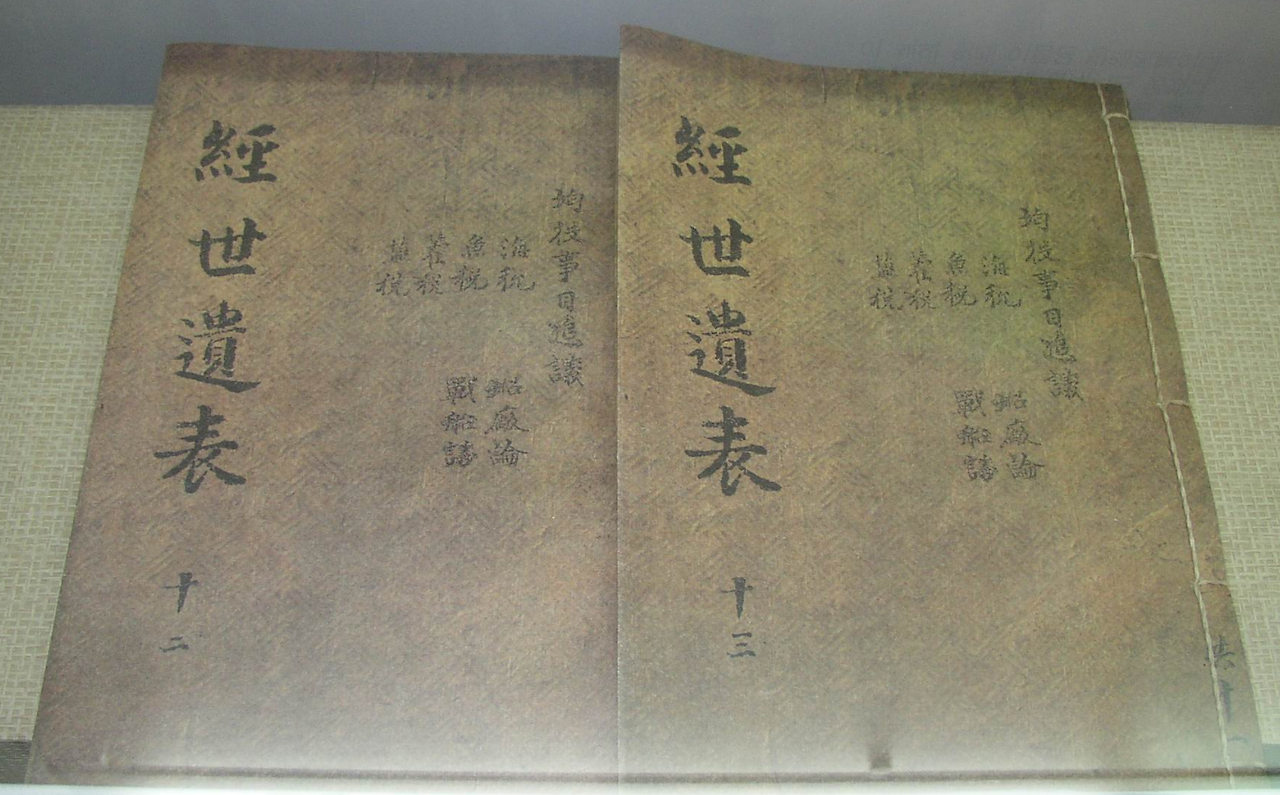 經世遺表 十二
均役事目追議
海稅
魚稅
藿稅
鹽稅
船廠論
戰船議
經世遺表 十三
均役事目追議
海稅
魚稅
藿稅
鹽稅
船廠論
戰船議
共十